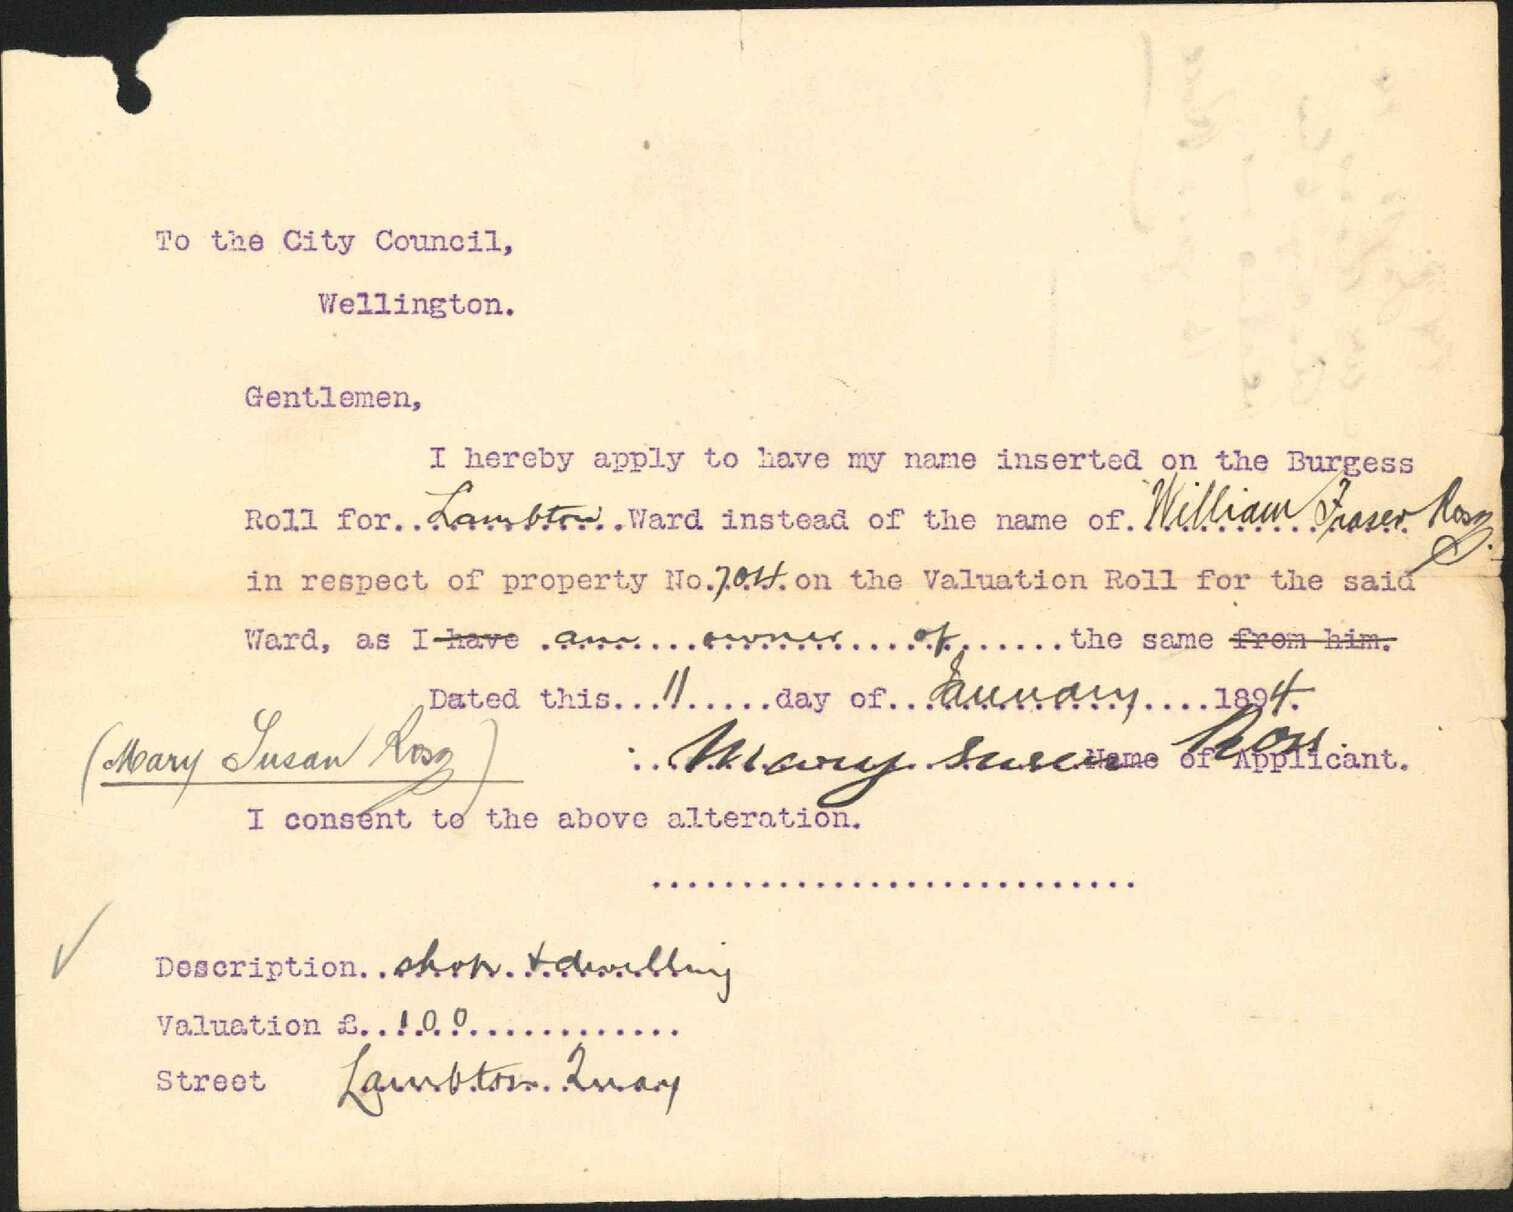 To the City Council,
Wellington.
Gentlemen,
I hereby apply to have my name inserted on the Burgess
Roll for..Lambton..Ward instead of the name of.William Fraser Ross.
in respect of property No.704.on the Valuation Roll for the said
Ward, as I have .am...owner...of......the same from him.
Dated this...11.....day of..January....1894.
(Mary Susan Ross) :..Mary Susan Ross. Name of Applicant.
I consent to the above alteration.
...........................
Description..shop.&dwelling
Valuation £..100............
Street Lambton.Quay